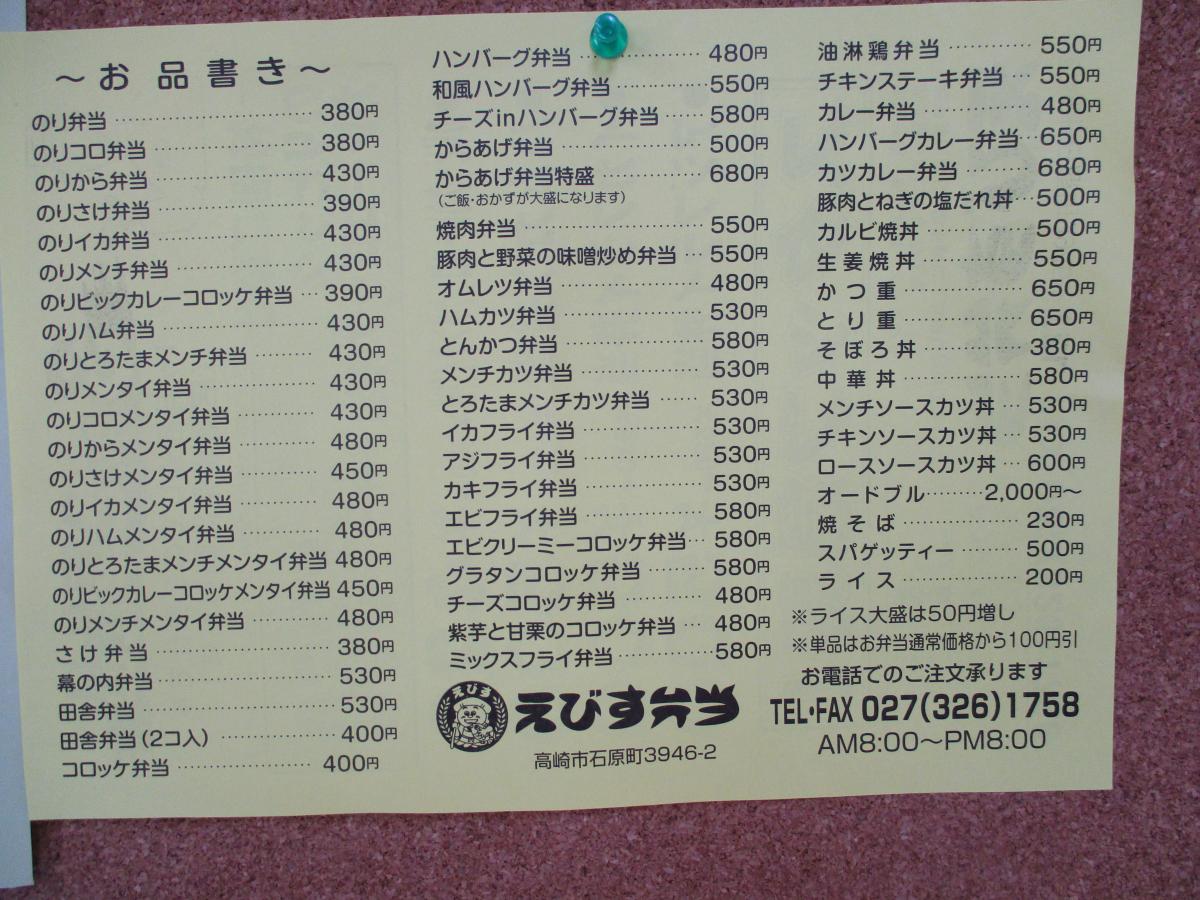 ～お品書き～
のり弁当 380円
のりコロ弁当 380円
のりから弁当 430円
のりさけ弁当 390円
のりイカ弁当 430円
のりメンチ弁当 430円
のりビックカレーコロッケ弁当 390円
のりハム弁当 430円
のりとろたまメンチ弁当 430円
のりメンタイ弁当 430円
のりコロメンタイ弁当 430円
のりからメンタイ弁当 480円
のりさけメンタイ弁当 450円
のりイカメンタイ弁当 480円
のりハムメンタイ弁当 480円
のりとろたまメンチメンタイ弁当 480円
のりビックカレーコロッケメンタイ弁当 450円
のりメンチメンタイ弁当 480円
さけ弁当 380円
幕の内弁当 530円
田舎弁当 530円
田舎弁当(2コ入) 400円
コロッケ弁当 400円
ハンバーグ弁当 480円
和風ハンバーグ弁当 550円
チーズinハンバーグ弁当 580円
からあげ弁当 500円
からあげ弁当特盛 680円
(ご飯・おかずが大盛になります)
焼肉弁当 550円
豚肉と野菜の味噌炒め弁当 550円
オムレツ弁当 480円
ハムカツ弁当 530円
とんかつ弁当 580円
メンチカツ弁当 530円
とろたまメンチカツ弁当 530円
イカフライ弁当 530円
アジフライ弁当 530円
カキフライ弁当 530円
エビフライ弁当 580円
エビクリーミーコロッケ弁当 580円
グラタンコロッケ弁当 580円
チーズコロッケ弁当 480円
紫芋と甘栗のコロッケ弁当 480円
ミックスフライ弁当 580円
えびす
えびす弁当
高崎市石原町3946-2
油淋鶏弁当 550円
チキンステーキ弁当 550円
カレー弁当 480円
ハンバーグカレー弁当 650円
カツカレー弁当 680円
豚肉とねぎの塩だれ丼 500円
カルビ焼丼 500円
生姜焼丼 550円
かつ重 650円
とり重 650円
そぼろ丼 380円
中華丼 580円
メンチソースカツ丼 530円
チキンソースカツ丼 530円
ロースソースカツ丼 600円
オードブル 2,000円～
焼そば 230円
スパゲッティー 500円
ライス 200円
※ライス大盛は50円増し
※単品はお弁当通常価格から100円引
お電話でのご注文承ります
TEL・FAX 027(326)1758
AM8:00～PM8:00